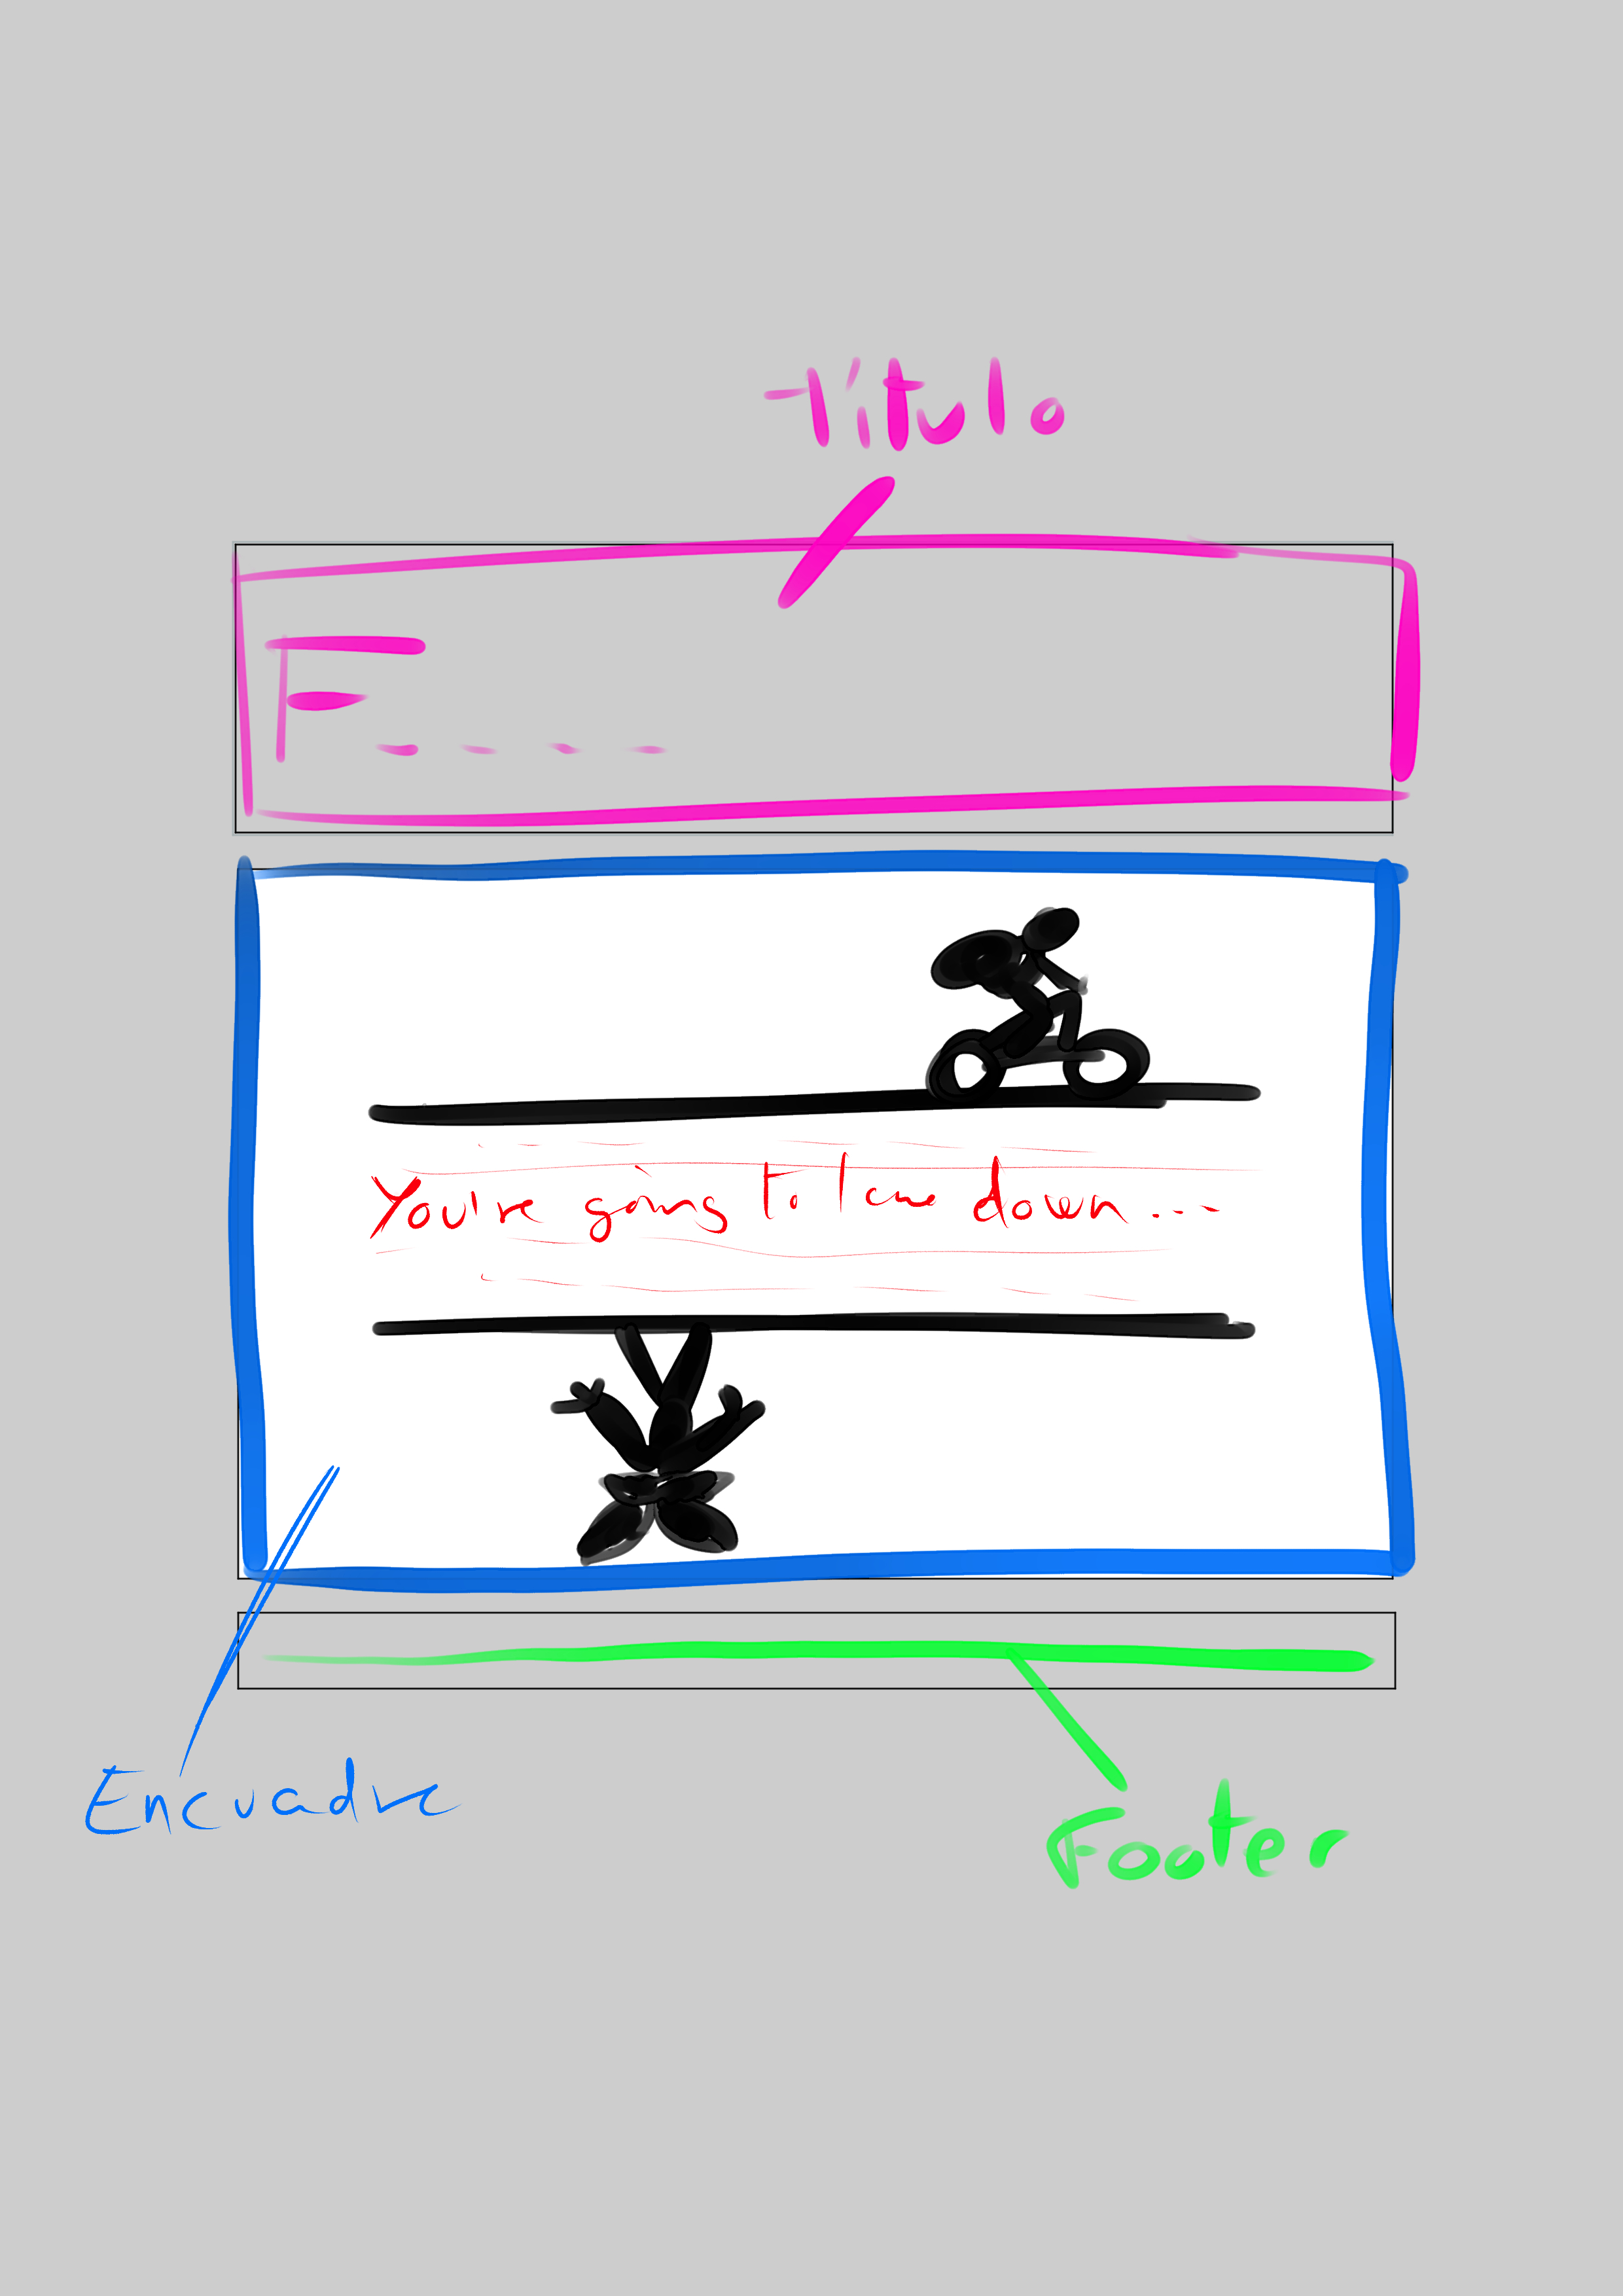 Título
F
You're going to [?] down...
Encuadre
Footer